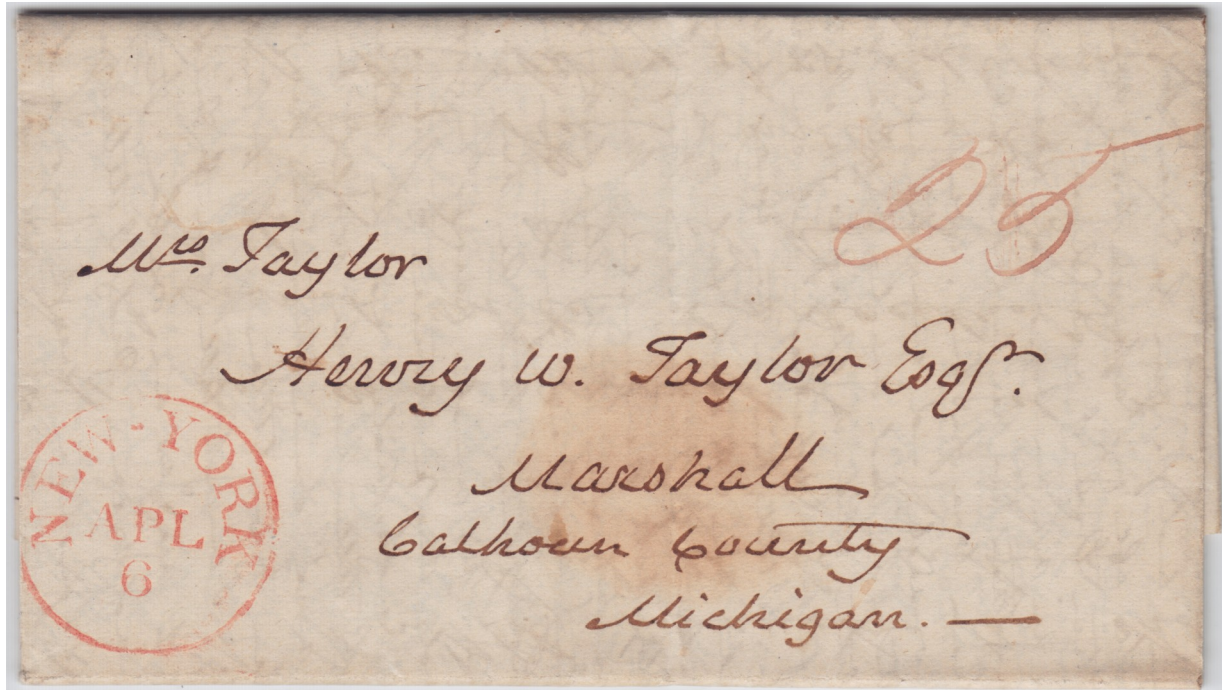 25
Mrs. Taylor
Henry W. Taylor Esqr.
Marshall
Calhoun County
Michigan.
NEW-YORK
APL
6